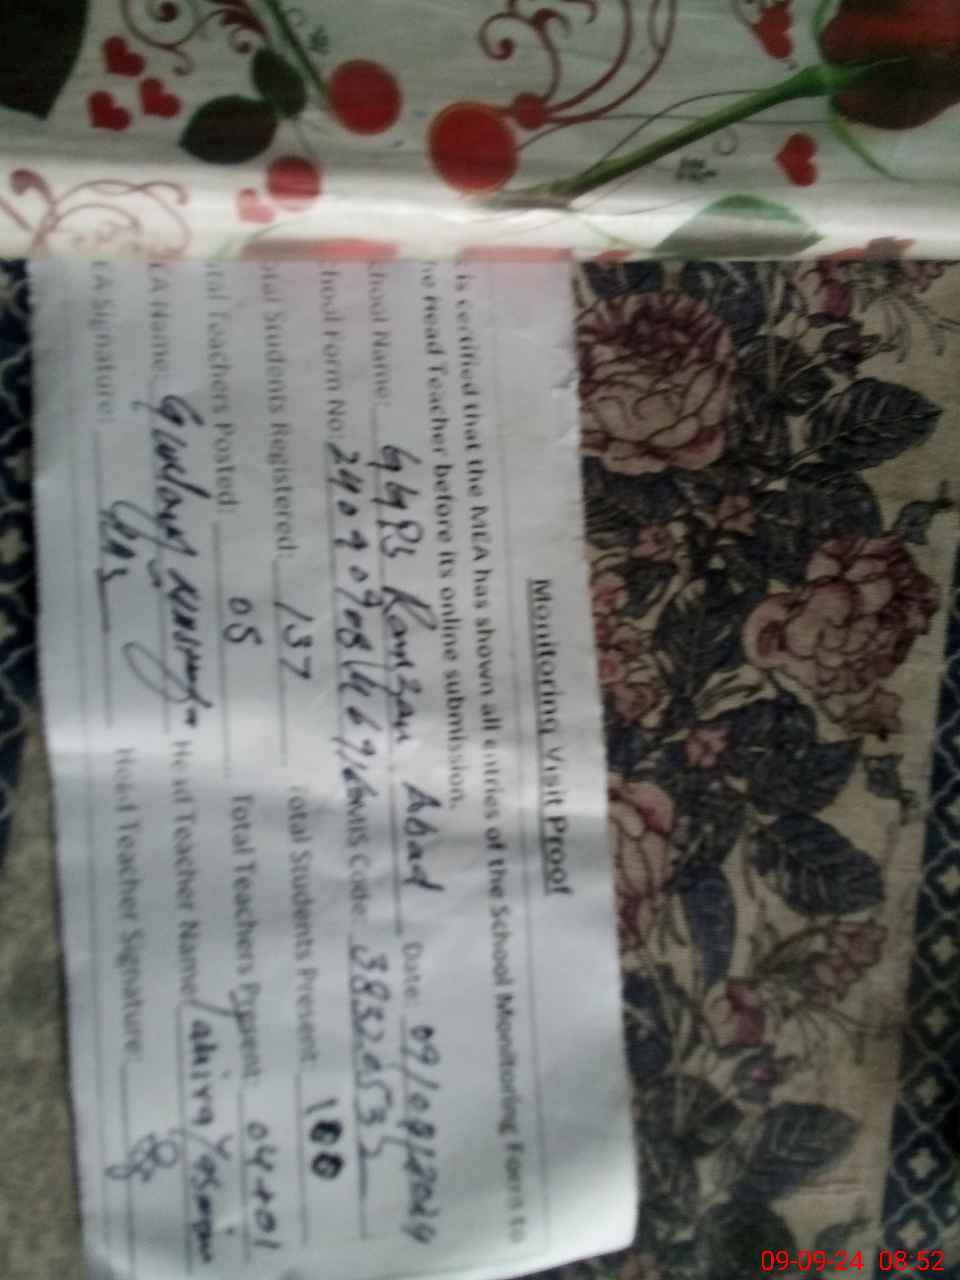 Monitoring Visit Proof
is certified that the MEA has shown all entries of the School Monitoring Form to
Head Teacher before its online submission.
School Name: GGPS Ramzan Abad Date: 09/09/2024
School Form No: EMIS Code:
Total Students Registered: 137 Total Students Present: 100
Total Teachers Posted: 05 Total Teachers Present: 04+01
EA Name: Ghulam Head Teacher Name: Tahira Yasmin
EA Signature: Head Teacher Signature:
09-09-24 08:52